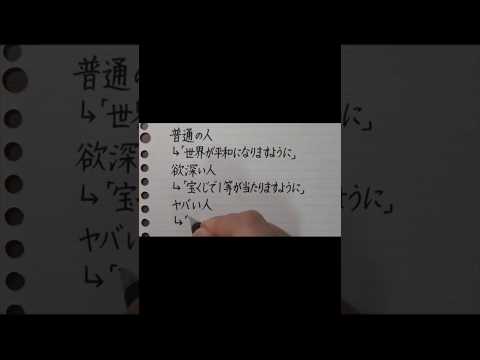 普通の人
↳「世界が平和になりますように」
欲深い人
↳「宝くじで1等が当たりますように」
ヤバい人
↳「